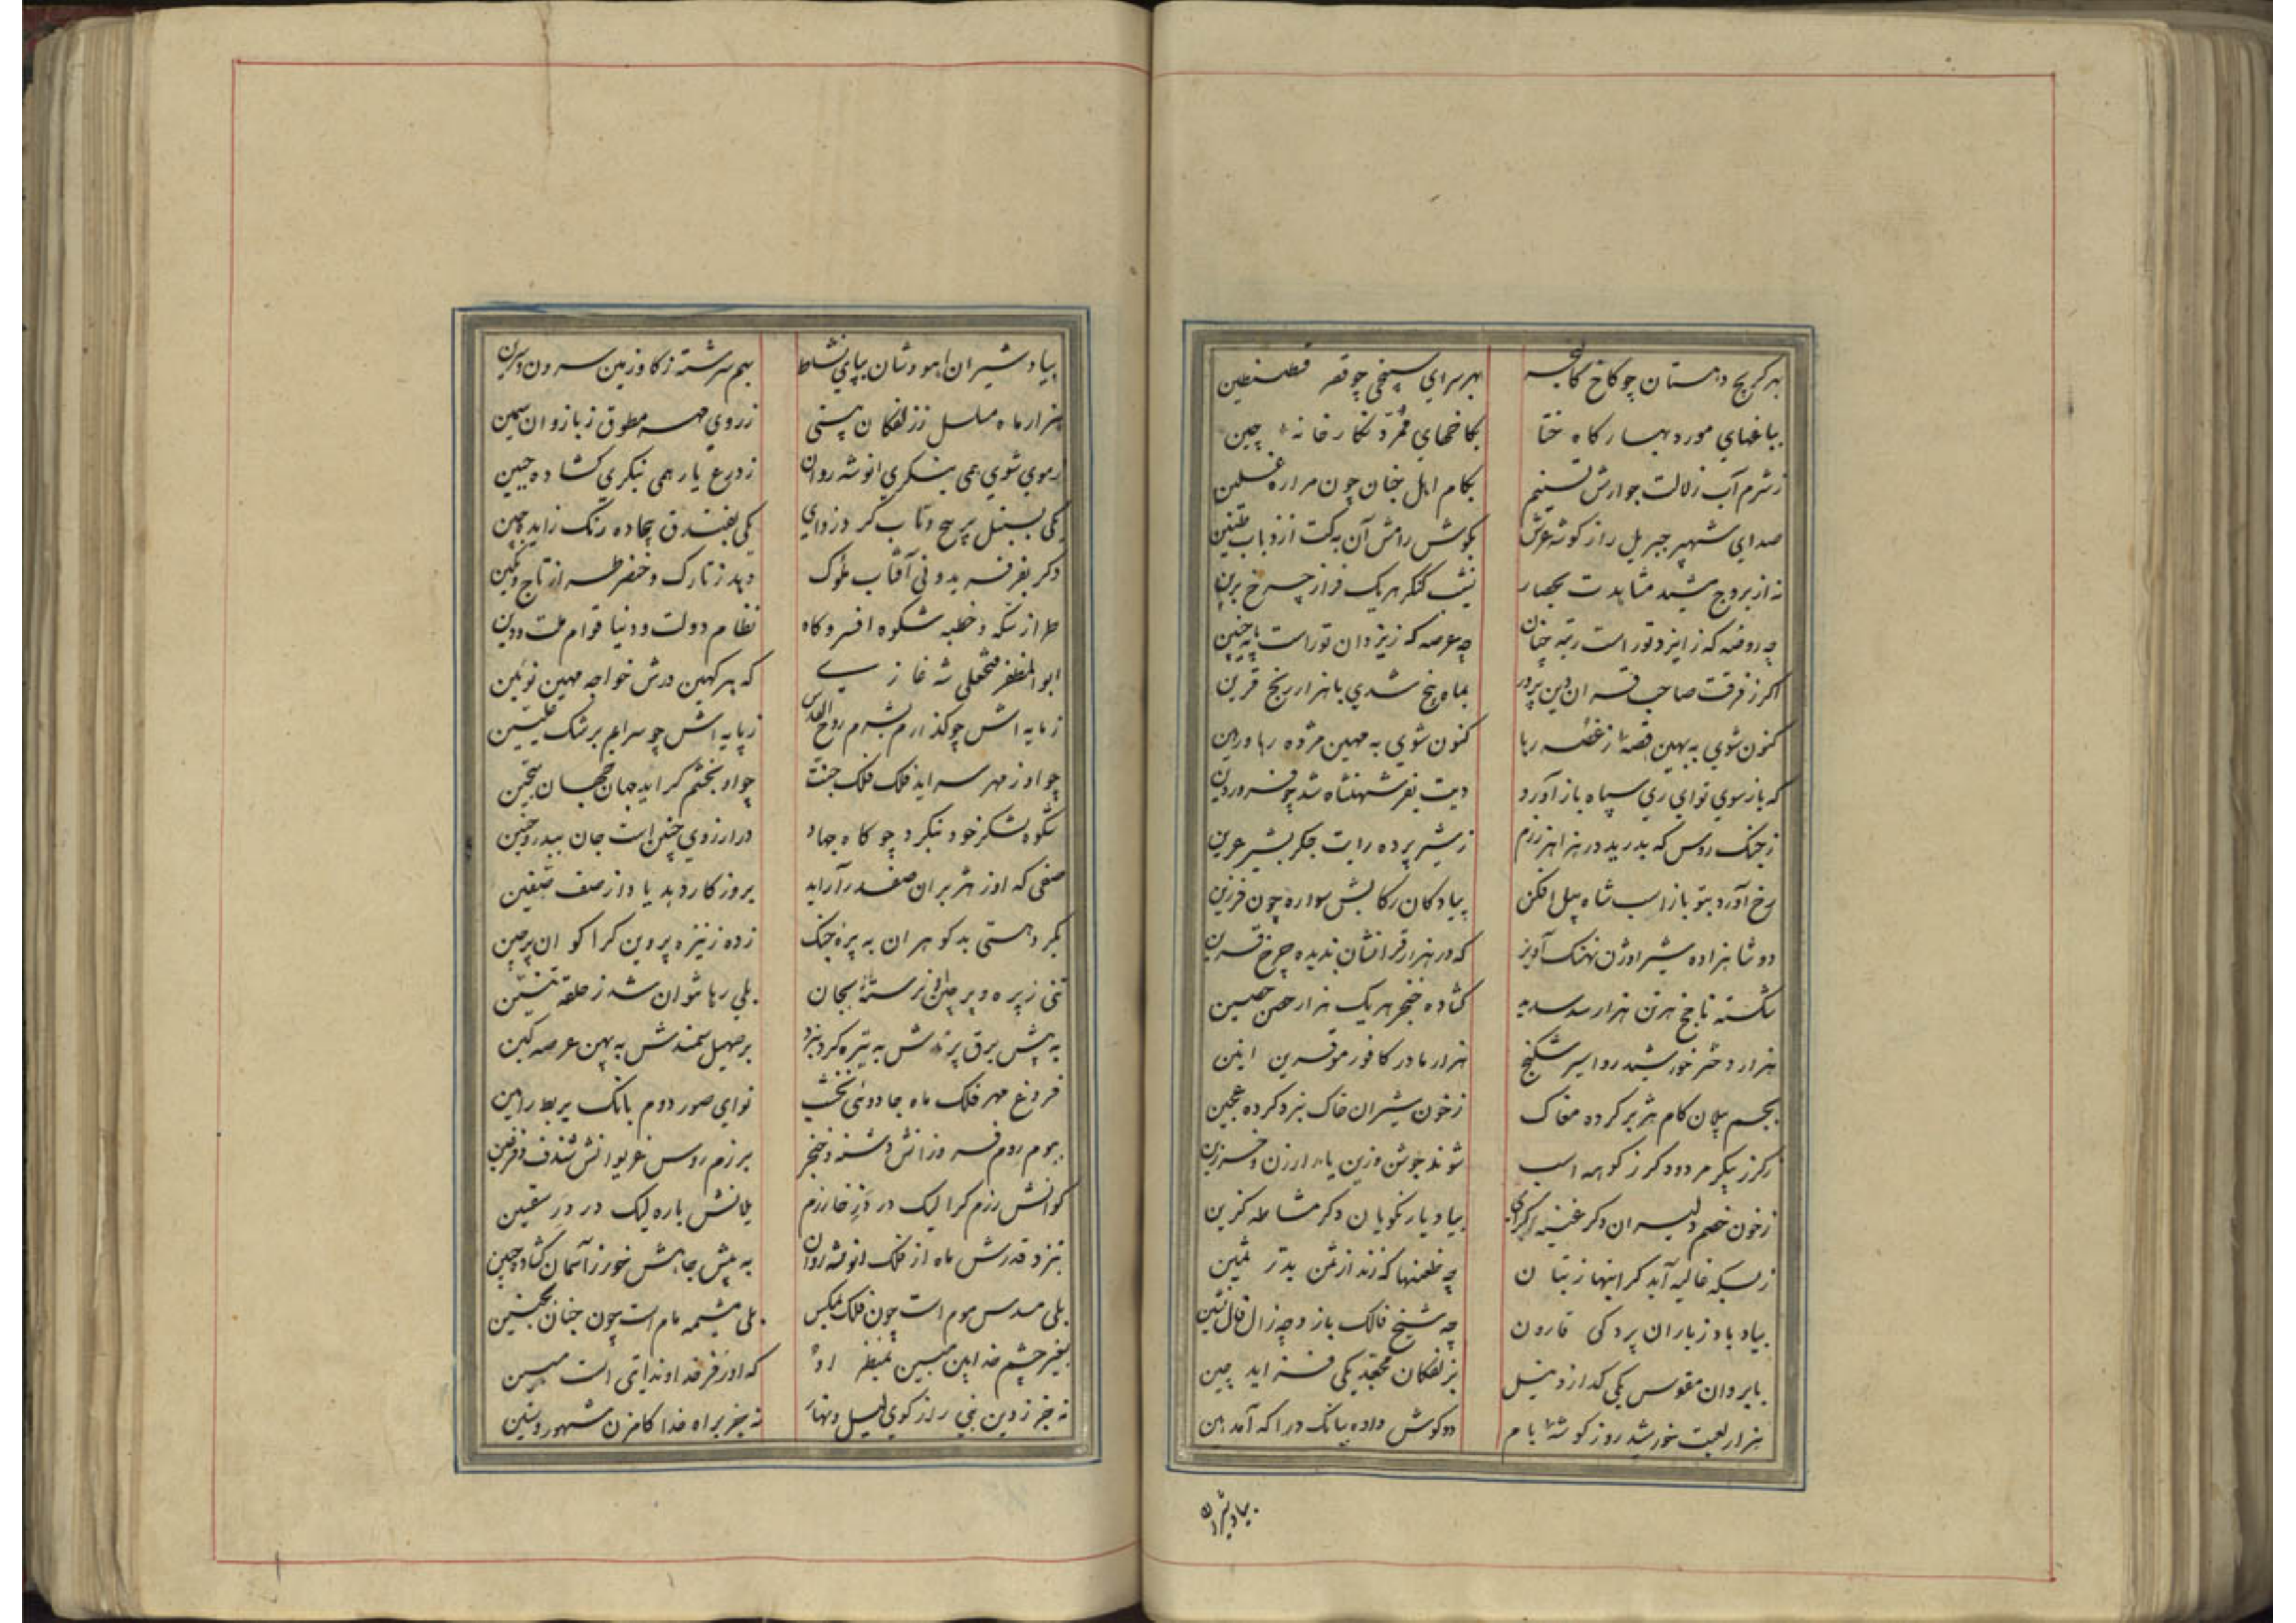 بهر کریج دهستان چو کاخ کالنجر بهر سرای سپنجی چو قصر قسطنطین
بباغهای مورد بهار کاه ختا بکاخهای ممرد نکارخانهٔ چین
ز شرم آب زلالت جوارش تسنیم بکام اهل جنان چون مراره غسلین
صدای شهپر جبریل را ز کوشه عرش بکوش رامش آن به کت از ذباب طنین
نه از بروج مشید مشابهت بحصار نشیب کنکر هریک فراز چرخ برین
چه روضه که ز ایزد تو راست رتبه چنان چه عرصه که ز یزدان تو راست پایه چنین
اکر ز فرقت صاحب قران دین پرور بماه پنج شدی با هزار رنج قرین
کنون شوی به بهین قصهٔ ز غصه رها کنون شوی به مهین مژده رها ز انین
که باز سوی تو ای ری سپاه باز آورد دیت بفر شهنشاه شد چو فروردین
ز جنک روس که بدرید در هزاهز رزم ز شیر پرده رایت جکر بشیر عرین
رخ آورد بتو باز اسب شاه پیل افکن پیادکان رکابش سواره چون فرزین
دو شاهزاده شیر اوژن نهنک آویز که در هزار قرانشان ندیده چرخ قرین
شکسته ناچخ هر تن هزار سد سدید کشاده خنجر هریک هزار حصن حصین
هزار دختر خورشید رو اسیر شکنج هزار مادر کافور مو قرین انین
بجسم پیلان کام هژبر کرده مغاک ز خون شیران خاک نبرد کرده عجین
ز کرز پیکر مرد و دکر ز کوهه اسب شوند جوشن و زین
ز خون خصم دلیران دکر بیاد یار نکویان دکر مشاطه کزین
ز بسکه غالیه آید کر اینها ز بتان چه طعنها که زند از ثمن بدر ثمین
بیاد باد ز یاران یر دکی قارون چه شیخ فالک باز و چه زال فال نشین
بابروان مقوس یکی کدازد نیل بزلفکان مجعد یکی فزاید چین
هزار لعبت خورشید روز کوشهٔ بام دو کوش داده ببانک درا که آمد هین
بیاد شیران
بیاد شیران آهو وشان بپای نشاط بهم سرشته ز کاو زمین سرون و سرین
هزار ماه مسلسل ز زلفکان پستی ز روی مه مطوق ز بازوان سیمین
ز موی شوی همی بنکری انوشه روان ز درع یار همی بنکری کشاده جبین
یکی بسنبل پر پیچ و تاب کرد زدای یکی بفندق بیجاده رنک زاید چین
دکر بفر فریدونی آفتاب ملوک دهد ز تارک و خنصر طراز تاج و نکین
طراز سکه و خطبه شکوه افسر و کاه نظام دولت و دنیا قوام ملت و دین
ابوالمظفر فتحعلی شه غازی که بر کهین درش خواجه مهین نوئین
ز مایه اش چو کذارم بشرم روح القدس ز پایه اش چو سرایم برشک علیین
چو او ز مهر سراید فلک فلک جنت چو او بخشم کراید جهان جهان سجین
شکوه لشکر خود بنکرد چو کاه جهاد در ارزوی چنین است جان ببدر و حنین
صفی که او ز هژبران صفدر آراید بروزکار دهد یاد از صف صفین
بکرد هستی بدکوهران به پره جنک زده ز نیزه پروین کرا کو ان پرچین
تنی ز پره و پرچین او نرسته بجان بلی رها نتوان شد ز حلقه تنین
به پیش برق پرندش به تیره کرد نبرد بر صهیل سمندش به پهن عرصه کین
فروغ مهر فلک ماه جادوی نخشب نوای صور دوم بانک بربط رامین
ببوم روم فروزانش دشنه و خنجر برزم روس غریوانش شندف و زفین
کوانش رزم کرا لیک در در خارزم یلانش باره لیک در در سقین
بنزد قدرش ماه از فلک انوشه روان به پیش جاهش خور ز آسمان کشاده جبین
بلی مسدس موم است چون فلک بمکس بلی مشیمه مام است چون جنان بجنین
بغیر چشم خدا بین مبین بمنظر او که او ز فر خداوند ایتی است مبین
نه جز ز دین نبی راز کوی لیل و نهار نه جز براه خدا کامزن شهور و سنین